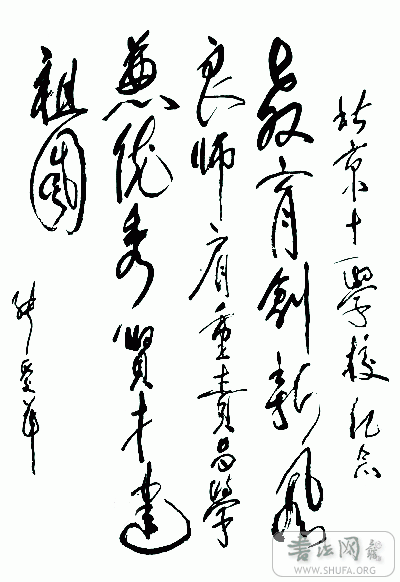 北京十一學校紀念
教育創新風
良師肩重責品學
兼优秀賢才建
祖國
張愛萍
書法网
WWW.SHUFA.ORG